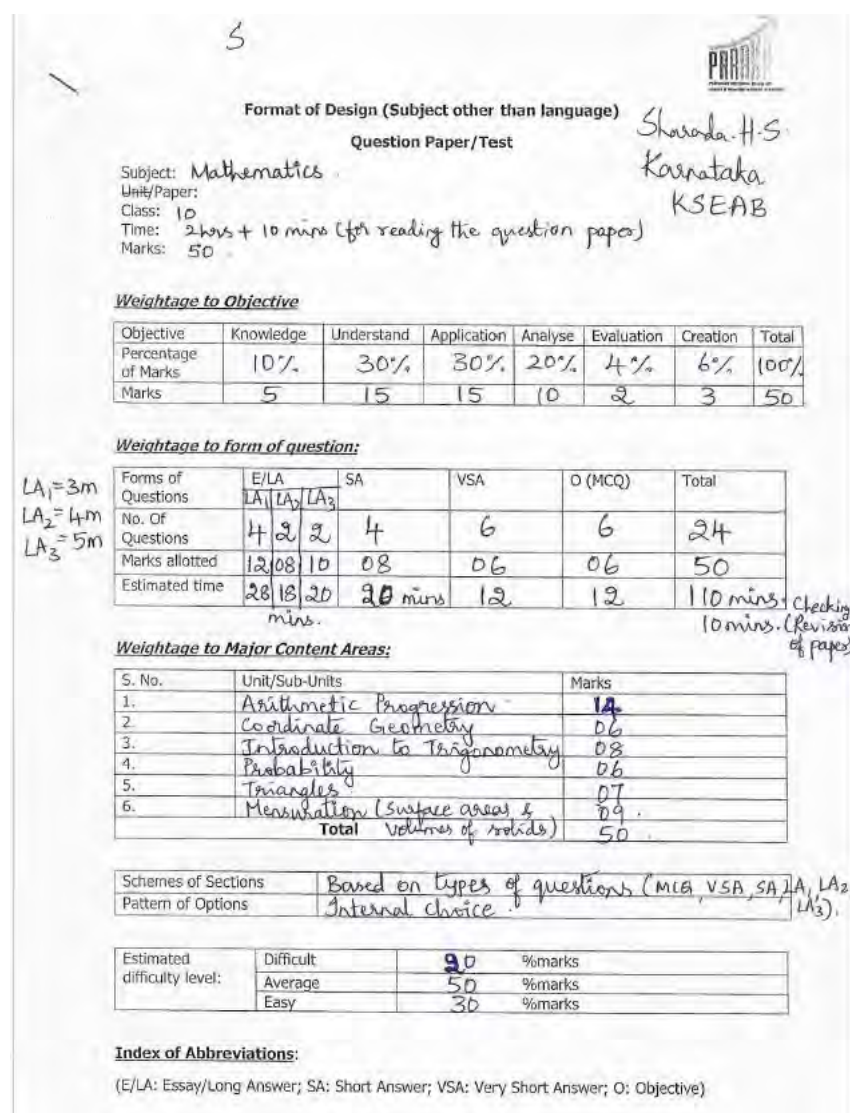 S
PARAKH
Format of Design (Subject other than language)
Question Paper/Test
Sharada.H.S
Karnataka
KSEAB
Subject: Mathematics
Unit/Paper:
Class: 10
Time: 2hrs + 10 mins (for reading the question paper)
Marks: 50
Weightage to Objective
Objective Knowledge Understand Application Analyse Evaluation Creation Total
Percentage of Marks 10% 30% 30% 20% 4% 6% 100%
Marks 5 15 15 10 2 3 50
Weightage to form of question:
LA1=3m
LA2=4m
LA3=5m
Forms of Questions E/LA SA VSA O (MCQ) Total
LA1 LA2 LA3
No. Of Questions 4 2 2 4 6 6 24
Marks allotted 12 08 10 08 06 06 50
Estimated time 28 18 20 20 mins 12 12 110 mins + Checking
mins. 10 mins. (Revision of paper)
Weightage to Major Content Areas:
S. No. Unit/Sub-Units Marks
1. Arithmetic Progression 14
2. Coordinate Geometry 06
3. Introduction to Trigonometry 08
4. Probability 06
5. Triangles 07
6. Mensuration (Surface areas & 09.
Total Volumes of solids) 50.
Schemes of Sections Based on types of questions (MCQ, VSA, SA, LA1, LA2
Pattern of Options Internal choice. LA3).
Estimated difficulty level: Difficult 20 %marks
Average 50 %marks
Easy 30 %marks
Index of Abbreviations:
(E/LA: Essay/Long Answer; SA: Short Answer; VSA: Very Short Answer; O: Objective)